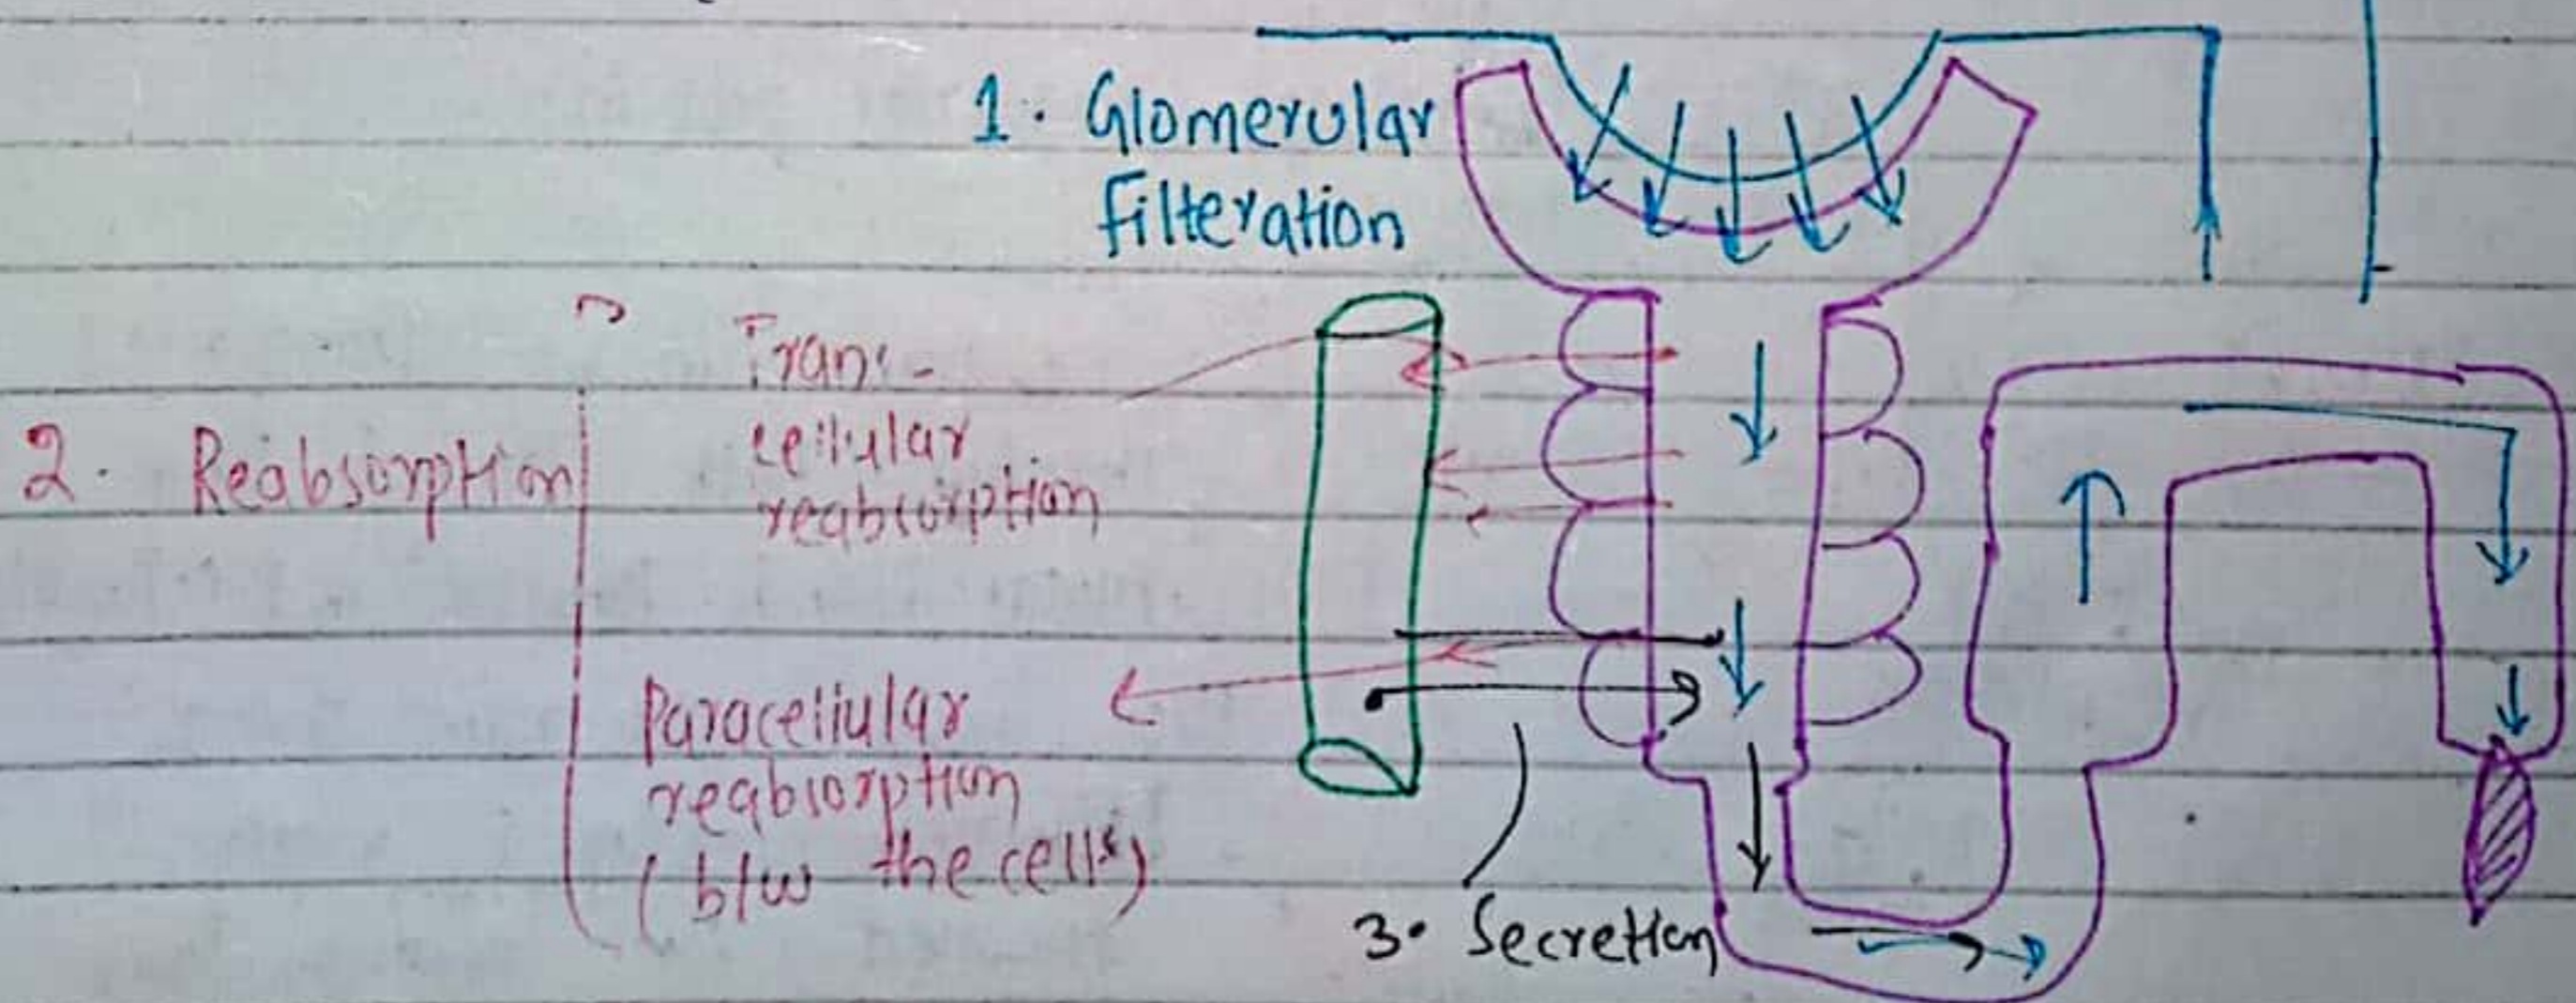 1. Glomerular
Filteration
2. Reabsorption
Trans-
cellular
reabsorption
Paracellular
reabsorption
(b/w the cells)
3. Secretion